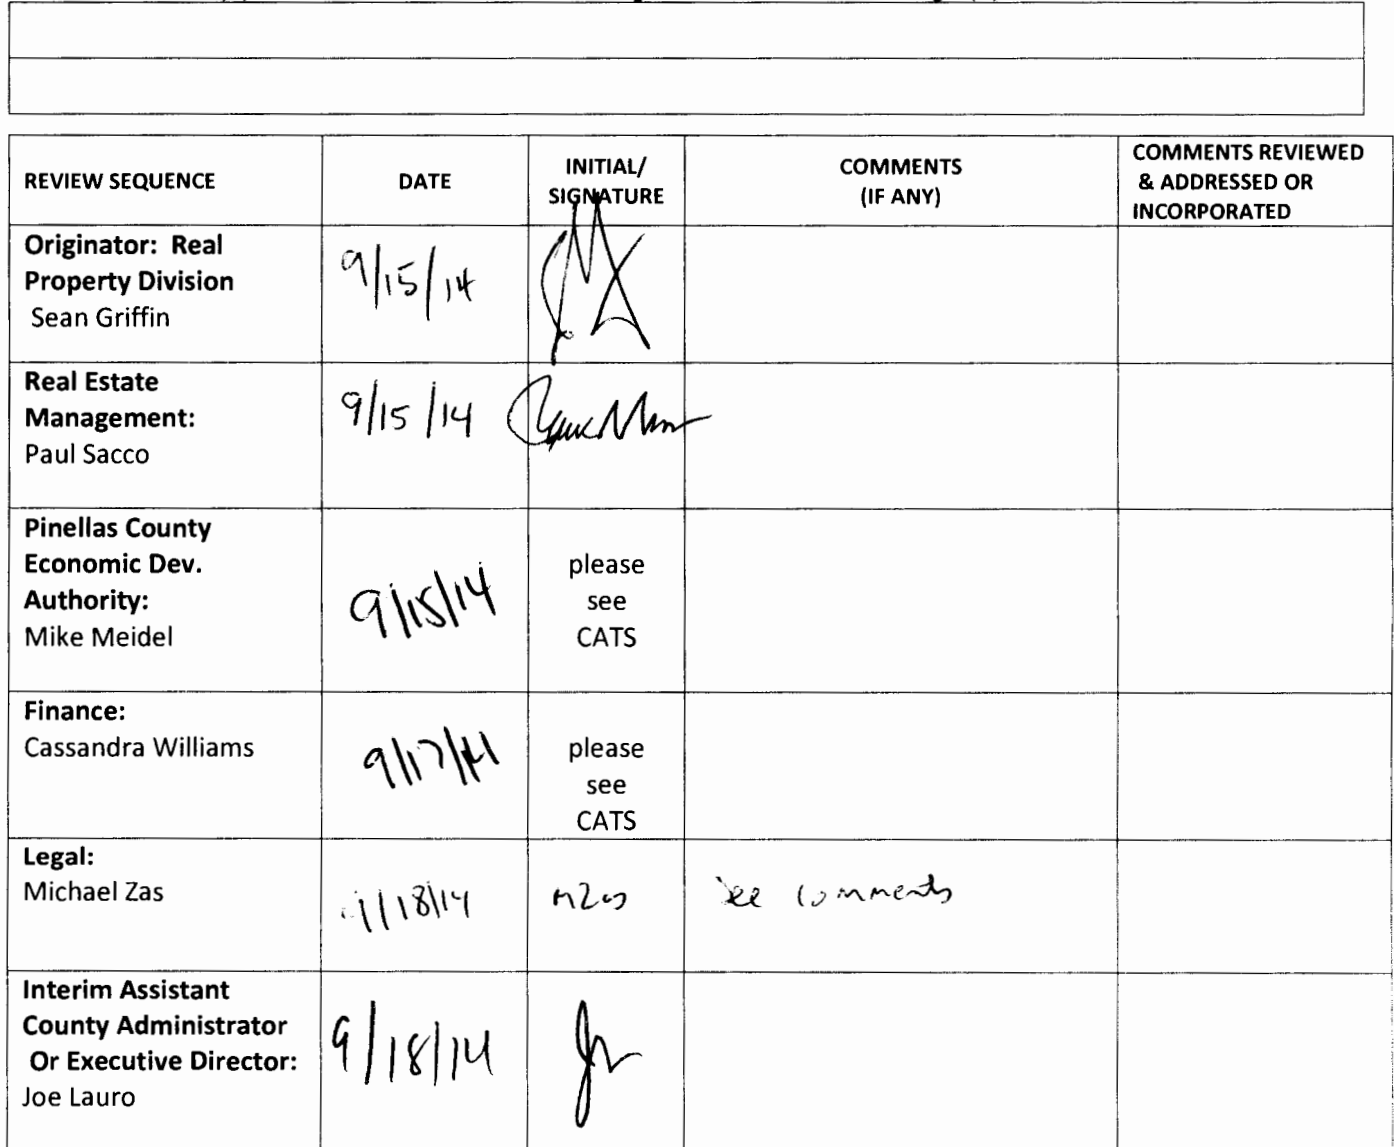 REVIEW SEQUENCE
DATE
INITIAL/
SIGNATURE
COMMENTS
(IF ANY)
COMMENTS REVIEWED
& ADDRESSED OR
INCORPORATED
Originator: Real
Property Division
Sean Griffin
9/15/14
Real Estate
Management:
Paul Sacco
9/15/14
Pinellas County
Economic Dev.
Authority:
Mike Meidel
9/15/14
please
see
CATS
Finance:
Cassandra Williams
9/17/14
please
see
CATS
Legal:
Michael Zas
9/18/14
mZas
See comments
Interim Assistant
County Administrator
Or Executive Director:
Joe Lauro
9/18/14